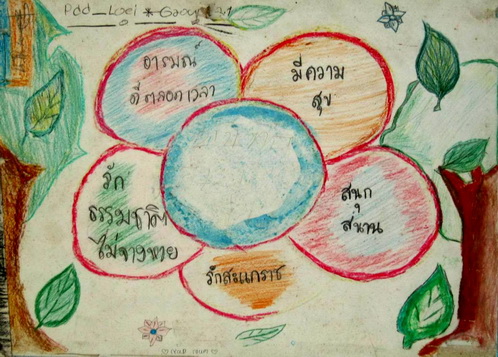 อารมณ์
ดีตลอดเวลา
มีความ
สุข
รัก
ธรรมชาติ
ไม่จางหาย
สนุก
สนาน
รักสะแกราช